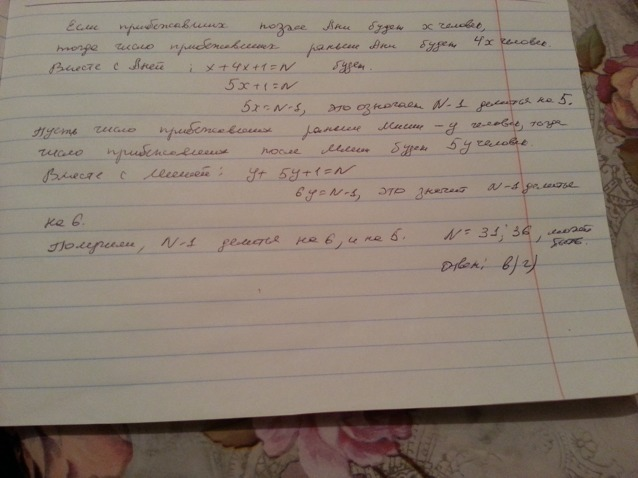 Если прибежавших позже Ани будет x человек,
тогда число прибежавших раньше Ани будет 4x человек.
Вместе с Аней ; x+4x+1=N будет.
5x+1=N
5x=N-1, это означает N-1 делится на 5.
Пусть число прибежавших раньше Миши - y человек, тогда
число прибежавших после Миши будет 5y человек.
Вместе с Мишей: y+ 5y+1=N
6y=N-1, это значит N-1 делится
на 6.
Получили, N-1 делится на 6, и на 5. N=31; 36, может
быть.
Ответ; в) г)